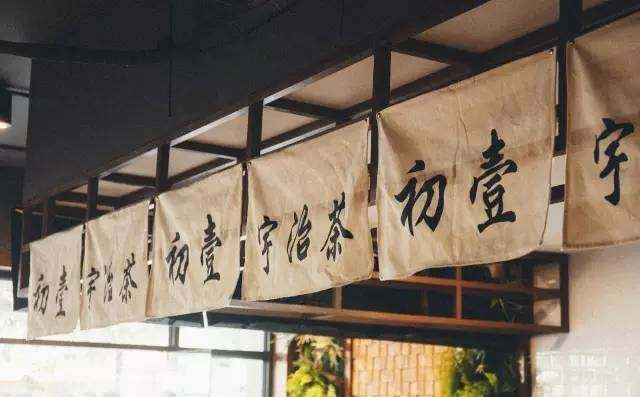 初壹
宇治茶
初壹
宇治茶
初壹
宇